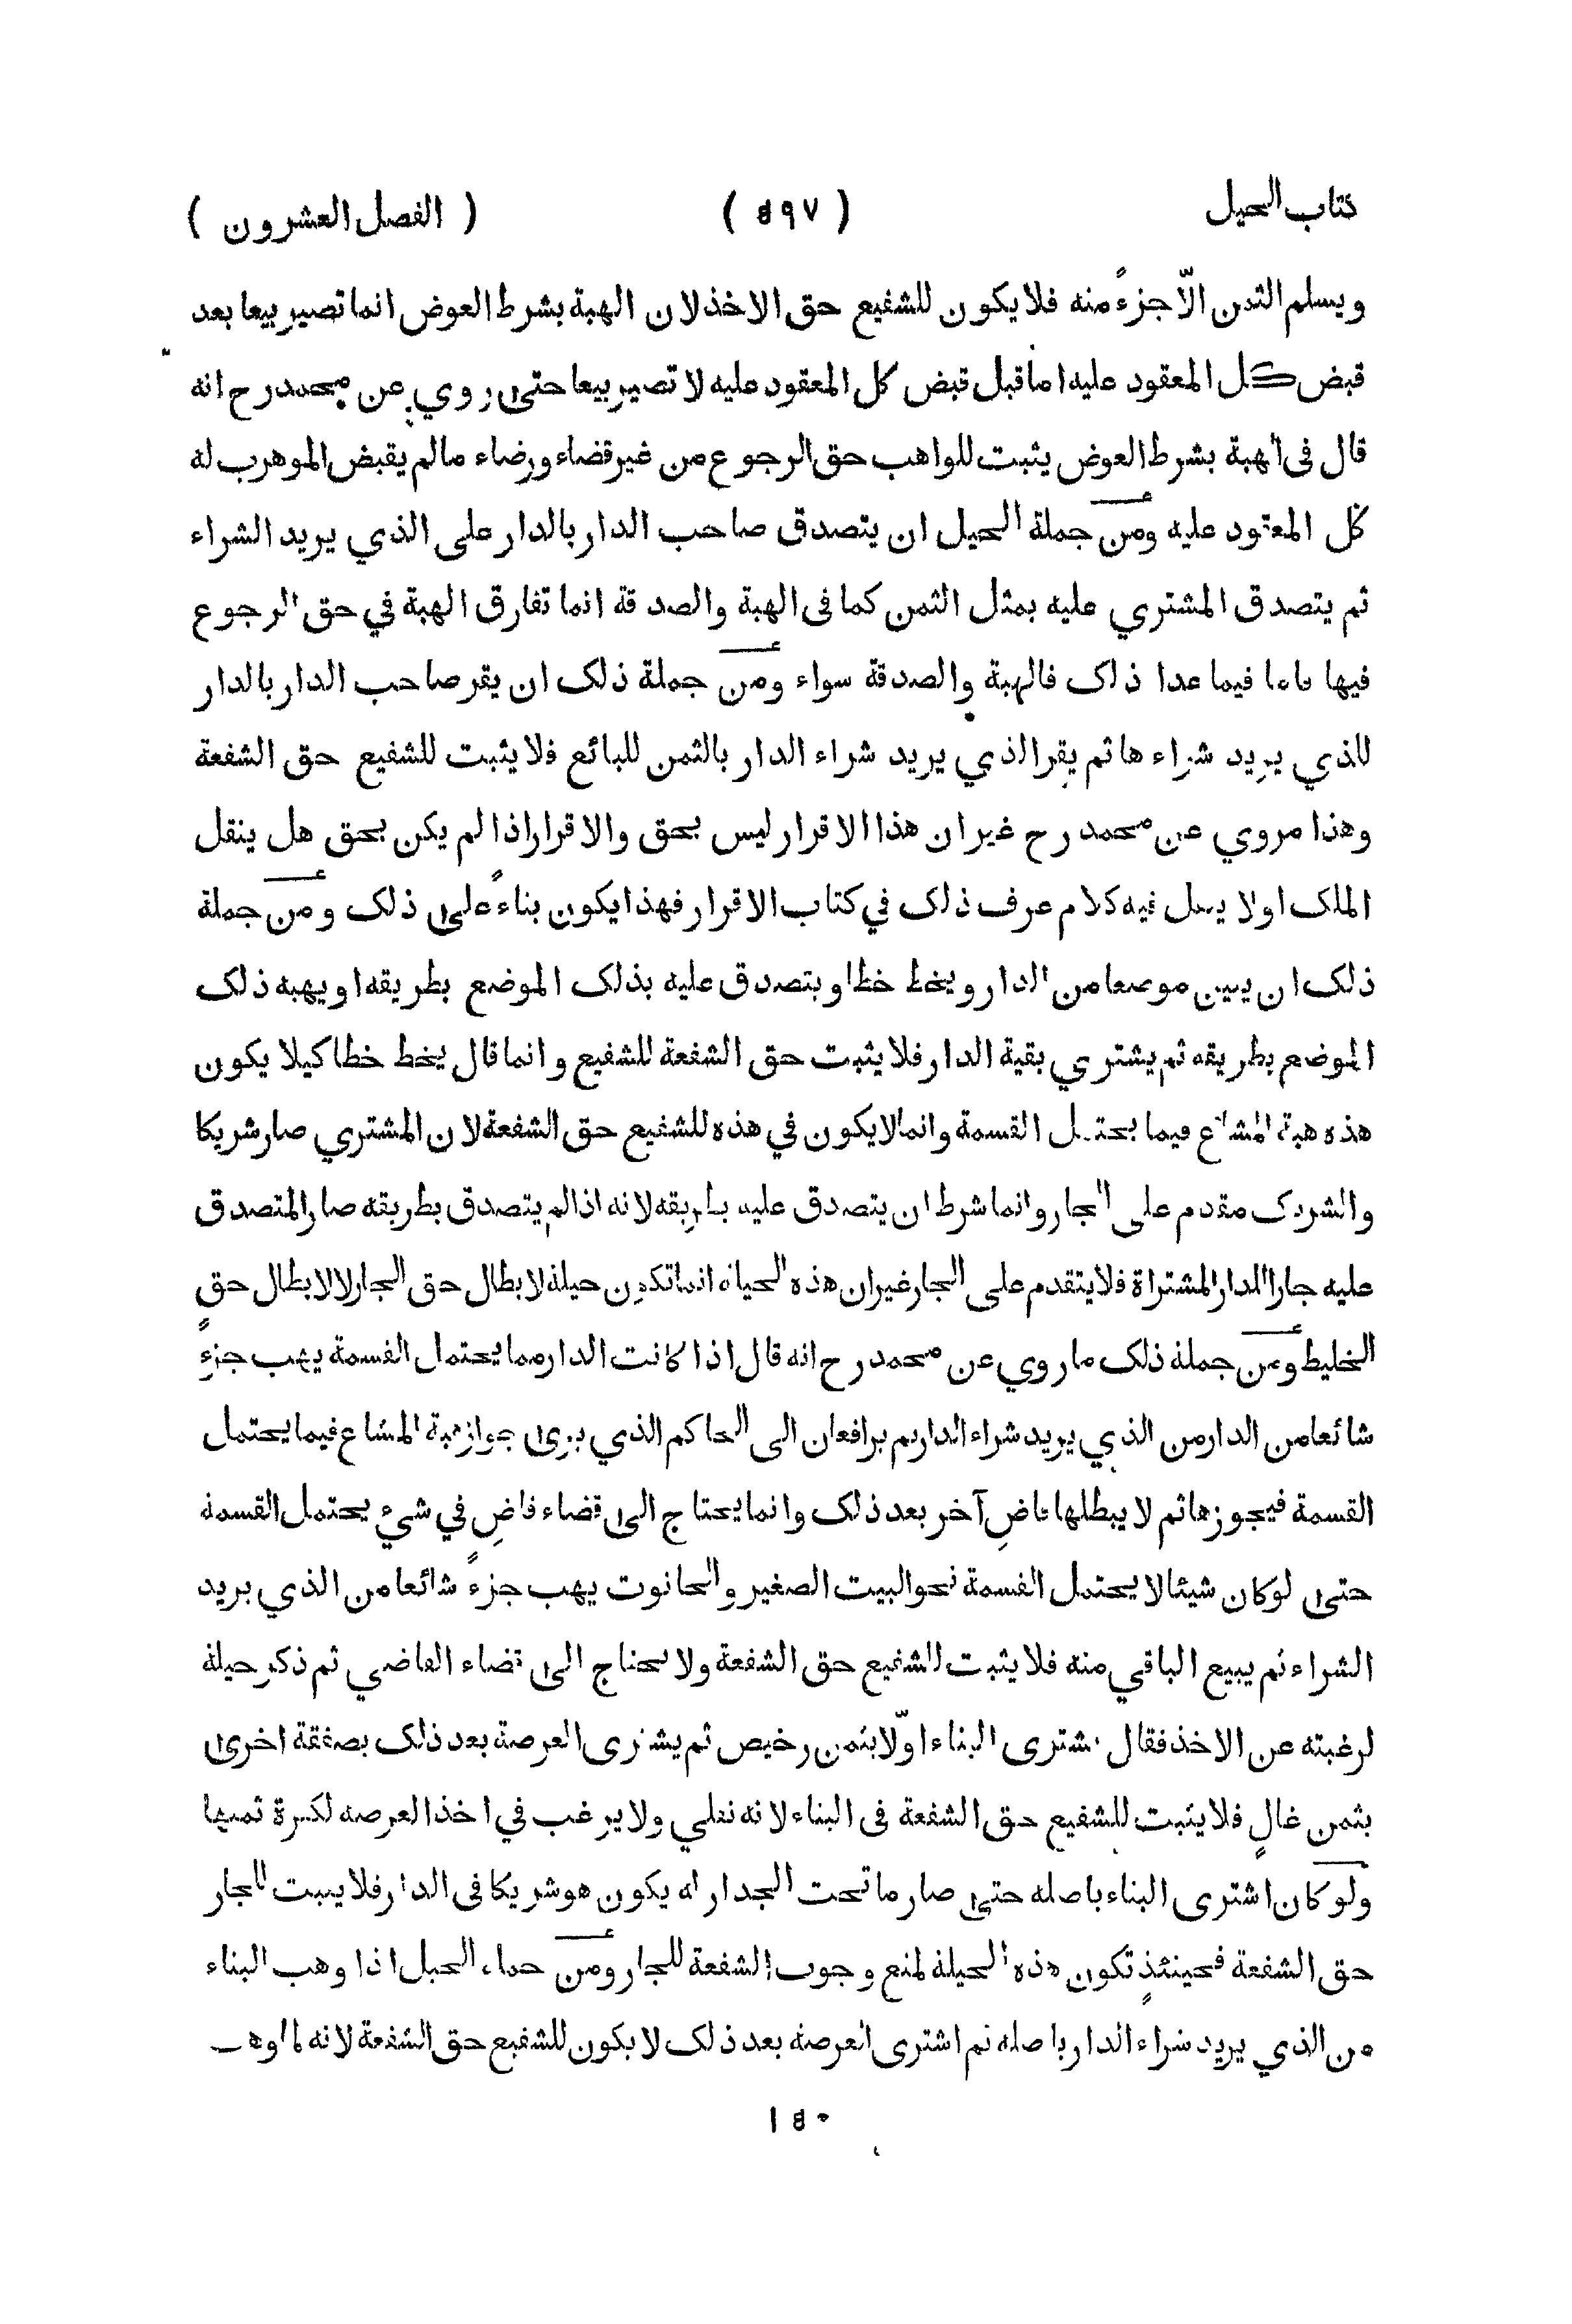 كتاب الحيل ( ٥٩٧ ) ( الفصل العشرون )
ويسلم الثمن الّا جزءً منه فلا يكون للشفيع حق الاخذ لان الهبة بشرط العوض انما تصير بيعا بعد
قبض كل المعقود عليه اما قبل قبض كل المعقود عليه لا تصير بيعا حتى روي عن محمد رح انه
قال فى الهبة بشرط العوض يثبت للواهب حق الرجوع من غير قضاء ورضاء مالم يقبض الموهوب له
كل المعقود عليه ومن جملة الحيل ان يتصدق صاحب الدار بالدار على الذي يريد الشراء
ثم يتصدق المشتري عليه بمثل الثمن كما فى الهبة والصدقة انما تفارق الهبة في حق الرجوع
فيها فاما فيما عدا ذلك فالهبة والصدقة سواء ومن جملة ذلك ان يقر صاحب الدار بالدار
للذي يريد شراءها ثم يقر الذي يريد شراء الدار بالثمن للبائع فلا يثبت للشفيع حق الشفعة
وهذا مروي عن محمد رح غير ان هذا الاقرار ليس بحق والاقرار اذا لم يكن بحق هل ينقل
الملك اولا ينقل فيه كلام عرف ذلك في كتاب الاقرار فهذا يكون بناءً على ذلك ومن جملة
ذلك ان يبين موضعا من الدار ويخط خطا ويتصدق عليه بذلك الموضع بطريقه او يهبه ذلك
الموضع بطريقه ثم يشتري بقية الدار فلا يثبت حق الشفعة للشفيع وانما قال يخط خطا كيلا يكون
هذه هبة المشاع فيما يحتمل القسمة وانما لا يكون في هذه للشفيع حق الشفعة لان المشتري صار شريكا
والشريك مقدم على الجار وانما شرط ان يتصدق عليه بطريقه لانه اذا لم يتصدق بطريقه صار المتصدق
عليه جار الدار المشتراة فلا يتقدم على الجار غير ان هذه الحيلة انما تكون حيلة لابطال حق الجار لا لابطال حق
الخليط ومن جملة ذلك ما روي عن محمد رح انه قال اذا كانت الدار مما يحتمل القسمة يهب جزءً
شائعا من الدار من الذي يريد شراء الدار ثم يرافعان الى الحاكم الذي يرى جواز هبة المشاع فيما يحتمل
القسمة فيجوزها ثم لا يبطلها قاضٍ آخر بعد ذلك وانما يحتاج الى قضاء قاضٍ في شيء يحتمل القسمة
حتى لو كان شيئا لا يحتمل القسمة نحو البيت الصغير والحانوت يهب جزءً شائعا من الذي يريد
الشراء ثم يبيع الباقي منه فلا يثبت للشفيع حق الشفعة ولا يحتاج الى قضاء القاضي ثم ذكر حيلة
لرغبته عن الاخذ فقال يشترى البناء اوّلا بثمن رخيص ثم يشترى العرصة بعد ذلك بصفقة اخرى
بثمن غالٍ فلا يثبت للشفيع حق الشفعة فى البناء لانه نقلي ولا يرغب في اخذ العرصة لكثرة ثمنها
ولو كان اشترى البناء باصله حتى صار ما تحت الجدار له يكون هو شريكا فى الدار فلا يثبت للجار
حق الشفعة فحينئذٍ تكون هذه الحيلة لمنع وجوب الشفعة للجار ومن جملة الحيل اذا وهب البناء
من الذي يريد شراء الدار باصله ثم اشترى العرصة بعد ذلك لا يكون للشفيع حق الشفعة لانه لما وهب
١٥٠